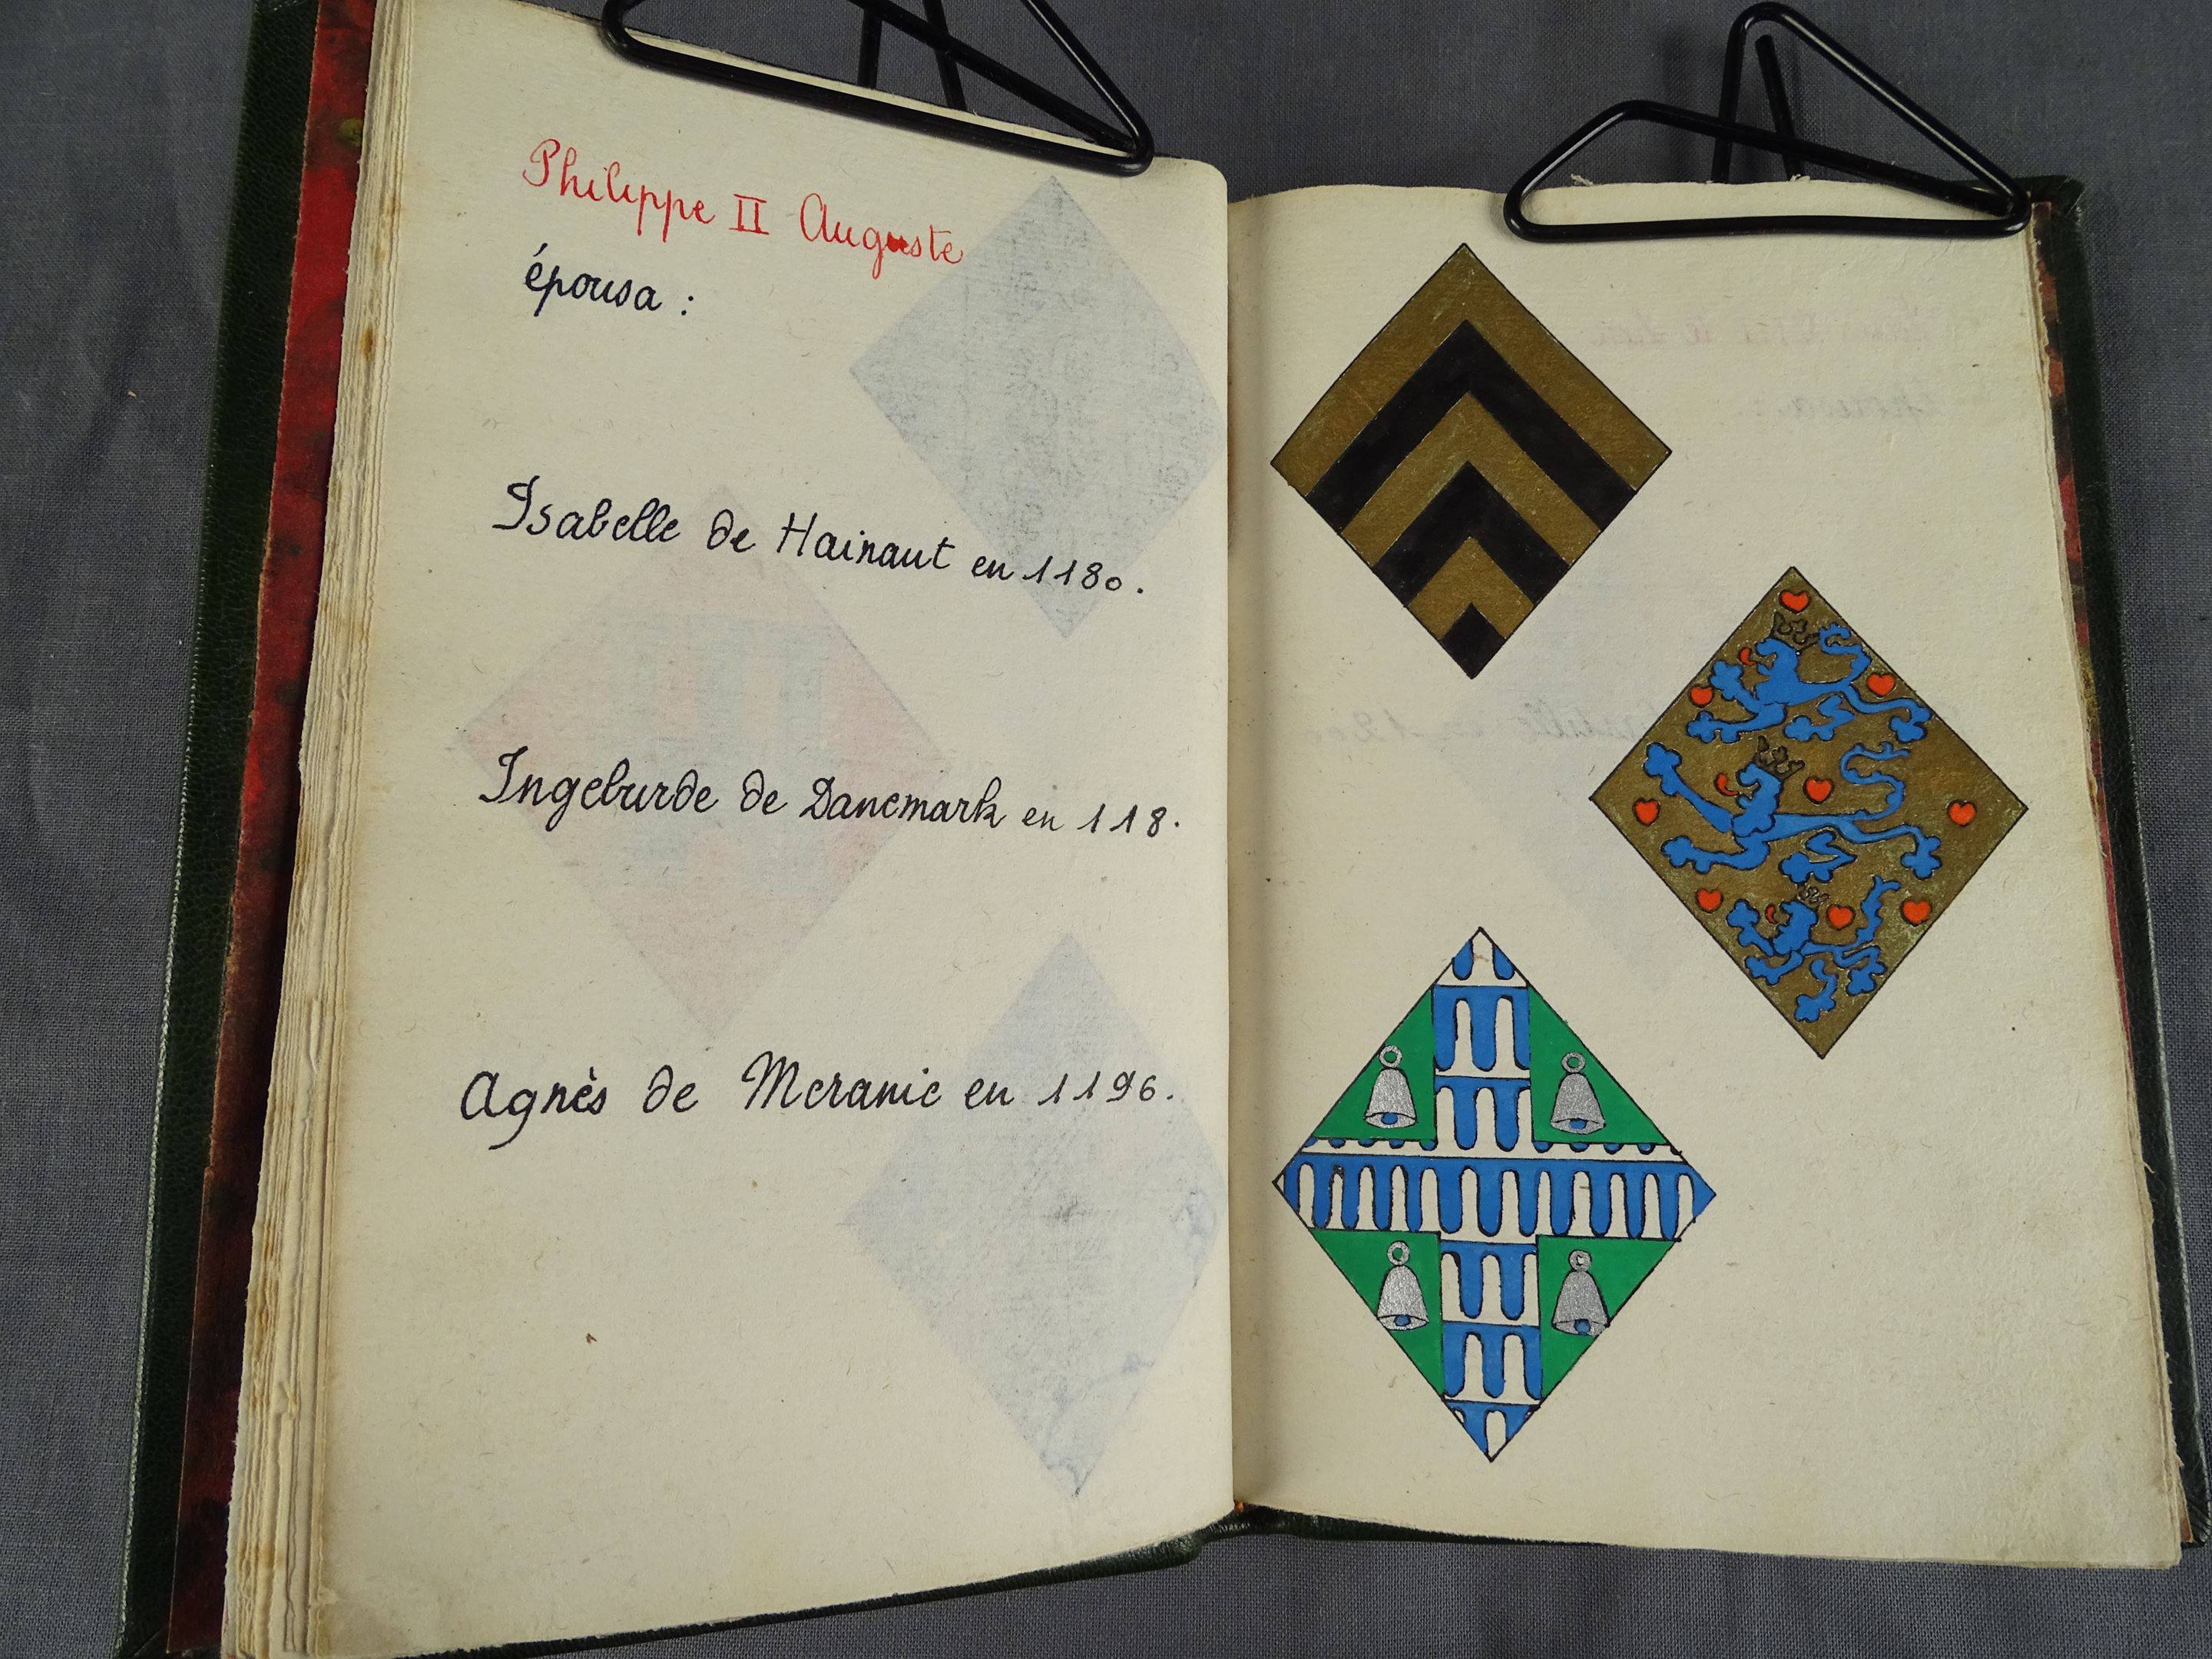 Philippe II Auguste
épousa :
Isabelle de Hainaut en 1180.
Ingeburde de Danemark en 118.
Agnès de Meranie en 1196.